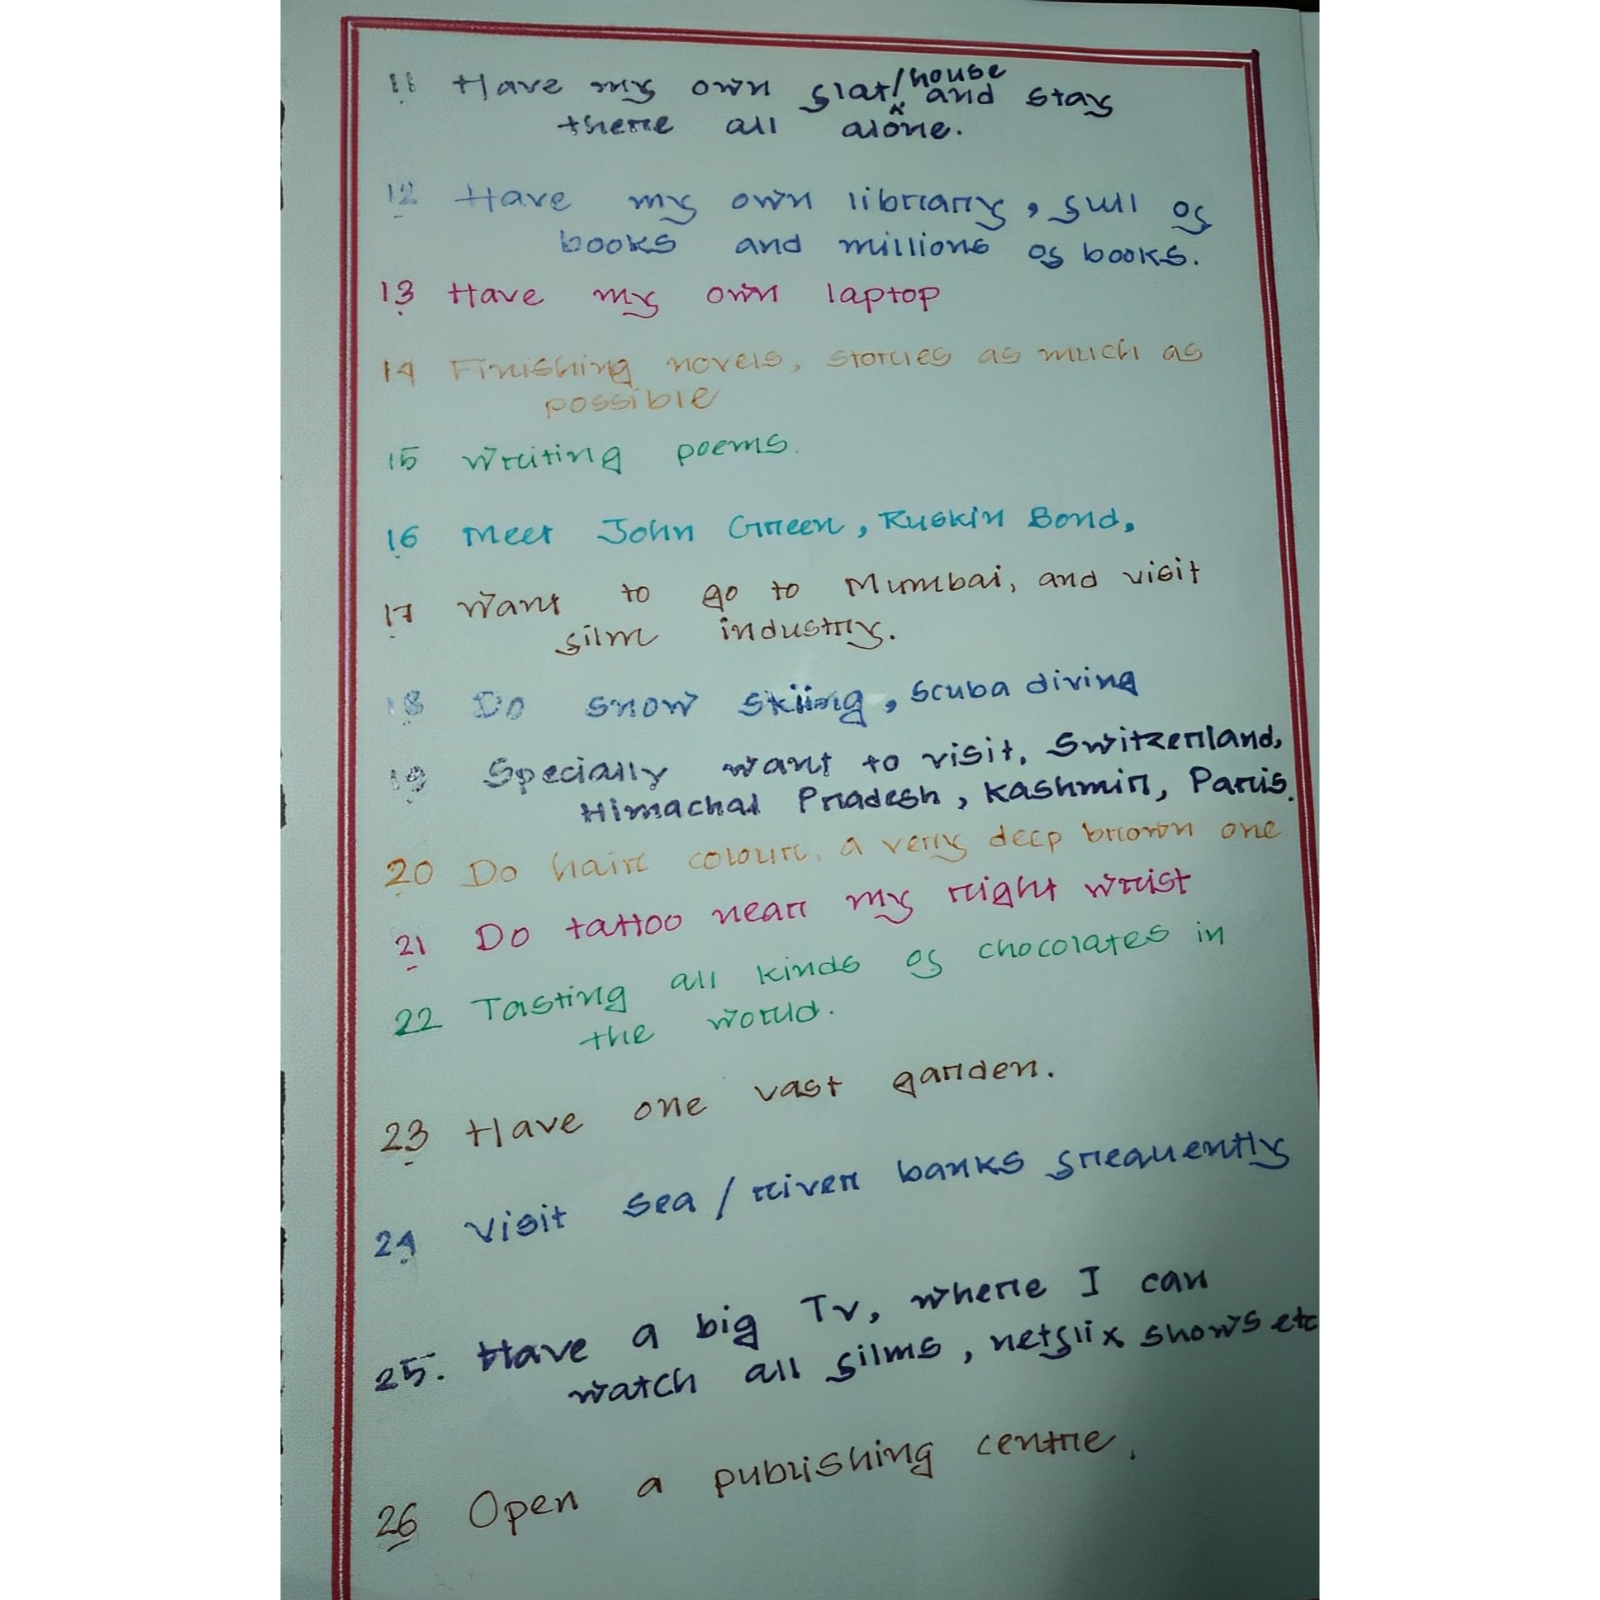 11 Have my own flat/house and stay
there all alone.
12 Have my own library, full of
books and millions of books.
13 Have my own laptop
14 Finishing novels, stories as much as
possible
15 Writing poems.
16 Meet John Green, Ruskin Bond,
17 Want to go to Mumbai, and visit
film industry.
18 Do snow skiing, scuba diving
19 Specially want to visit, Switzerland,
Himachal Pradesh, Kashmir, Paris.
20 Do hair colour, a very deep brown one
21 Do tattoo near my right wrist
22 Tasting all kinds of chocolates in
the world.
23 Have one vast garden.
24 Visit sea / river banks frequently
25. Have a big Tv, where I can
watch all films, netflix shows etc
26 Open a publishing centre.